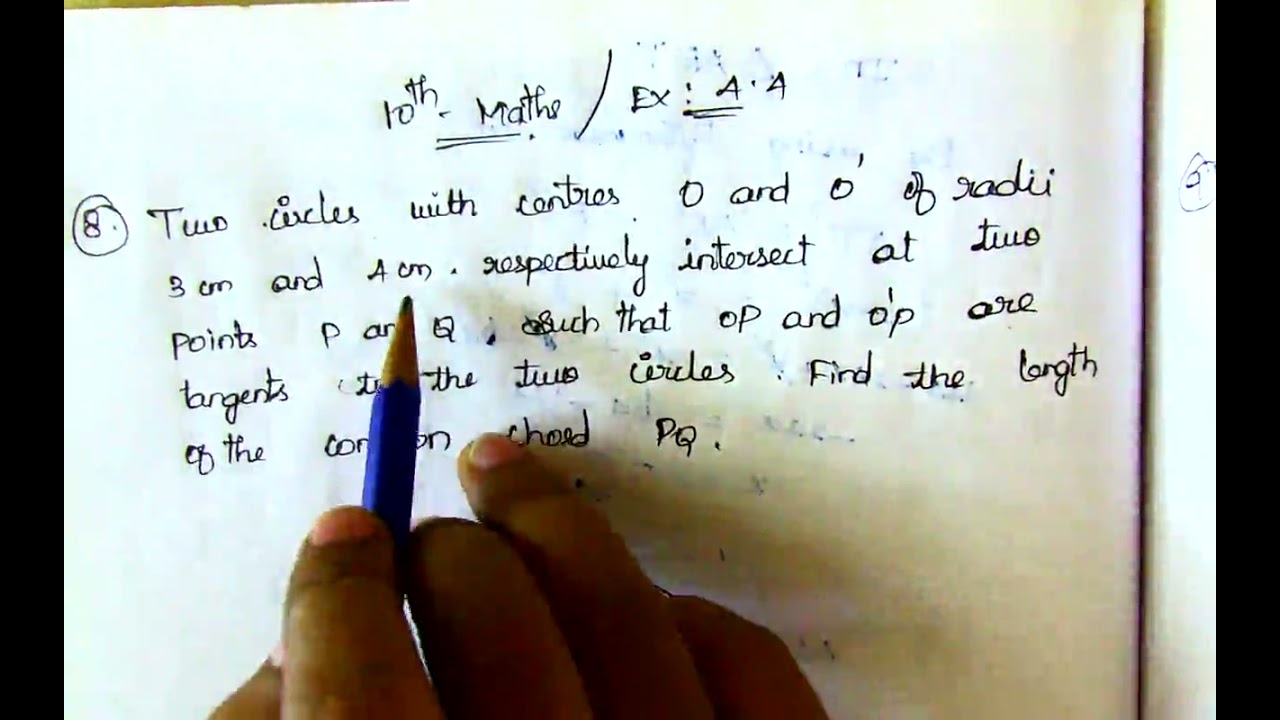 10th - Maths / Ex: 4.4
8. Two circles with centres O and O' of radii
3 cm and 4 cm. respectively intersect at two
points P an Q, such that OP and O'P are
tangents to the two circles. Find the length
of the common chord PQ.
9.